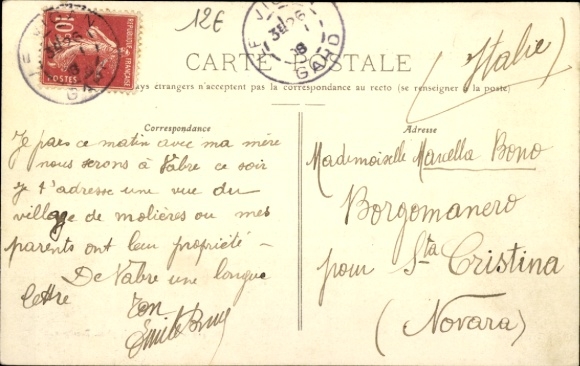 12€
10
POSTES
REPUBLIQUE FRANÇAISE
3E 26
08
GARD
CARTE POSTALE
(Italie)
pays étrangers n'acceptent pas la correspondance au recto (se renseigner à la poste)
Correspondance
Je pars ce matin avec ma mère
nous serons à Vabre ce soir
Je t'adresse une vue du
village de molières ou mes
parents ont leur propriété -
De Vabre une longue
lettre
Ton
Emile
Adresse
Mademoiselle Marcella Bono
Borgomanero
pour Sta Cristina
(Novara)